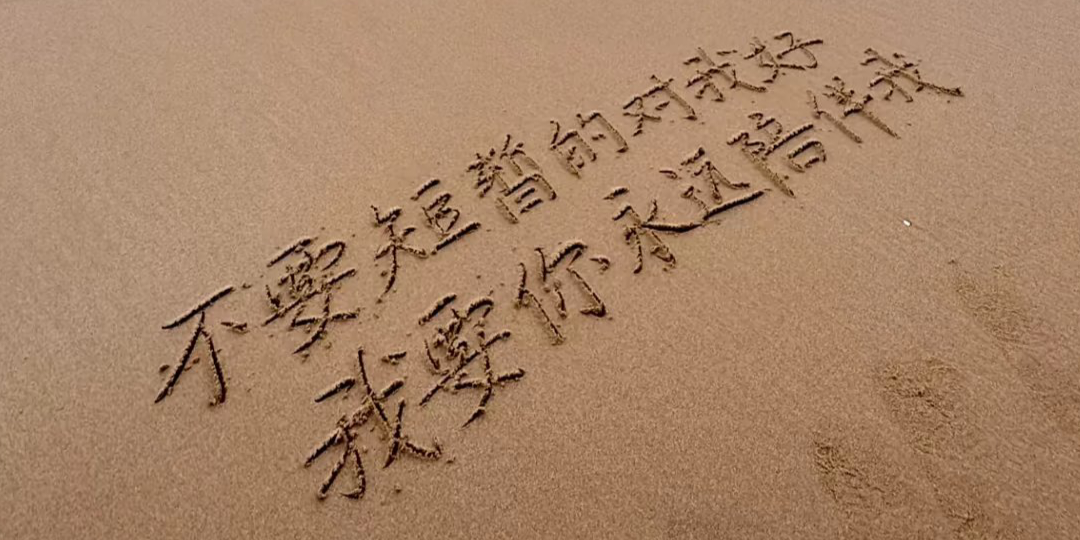 不要短暂的对我好
我要你永远陪伴我